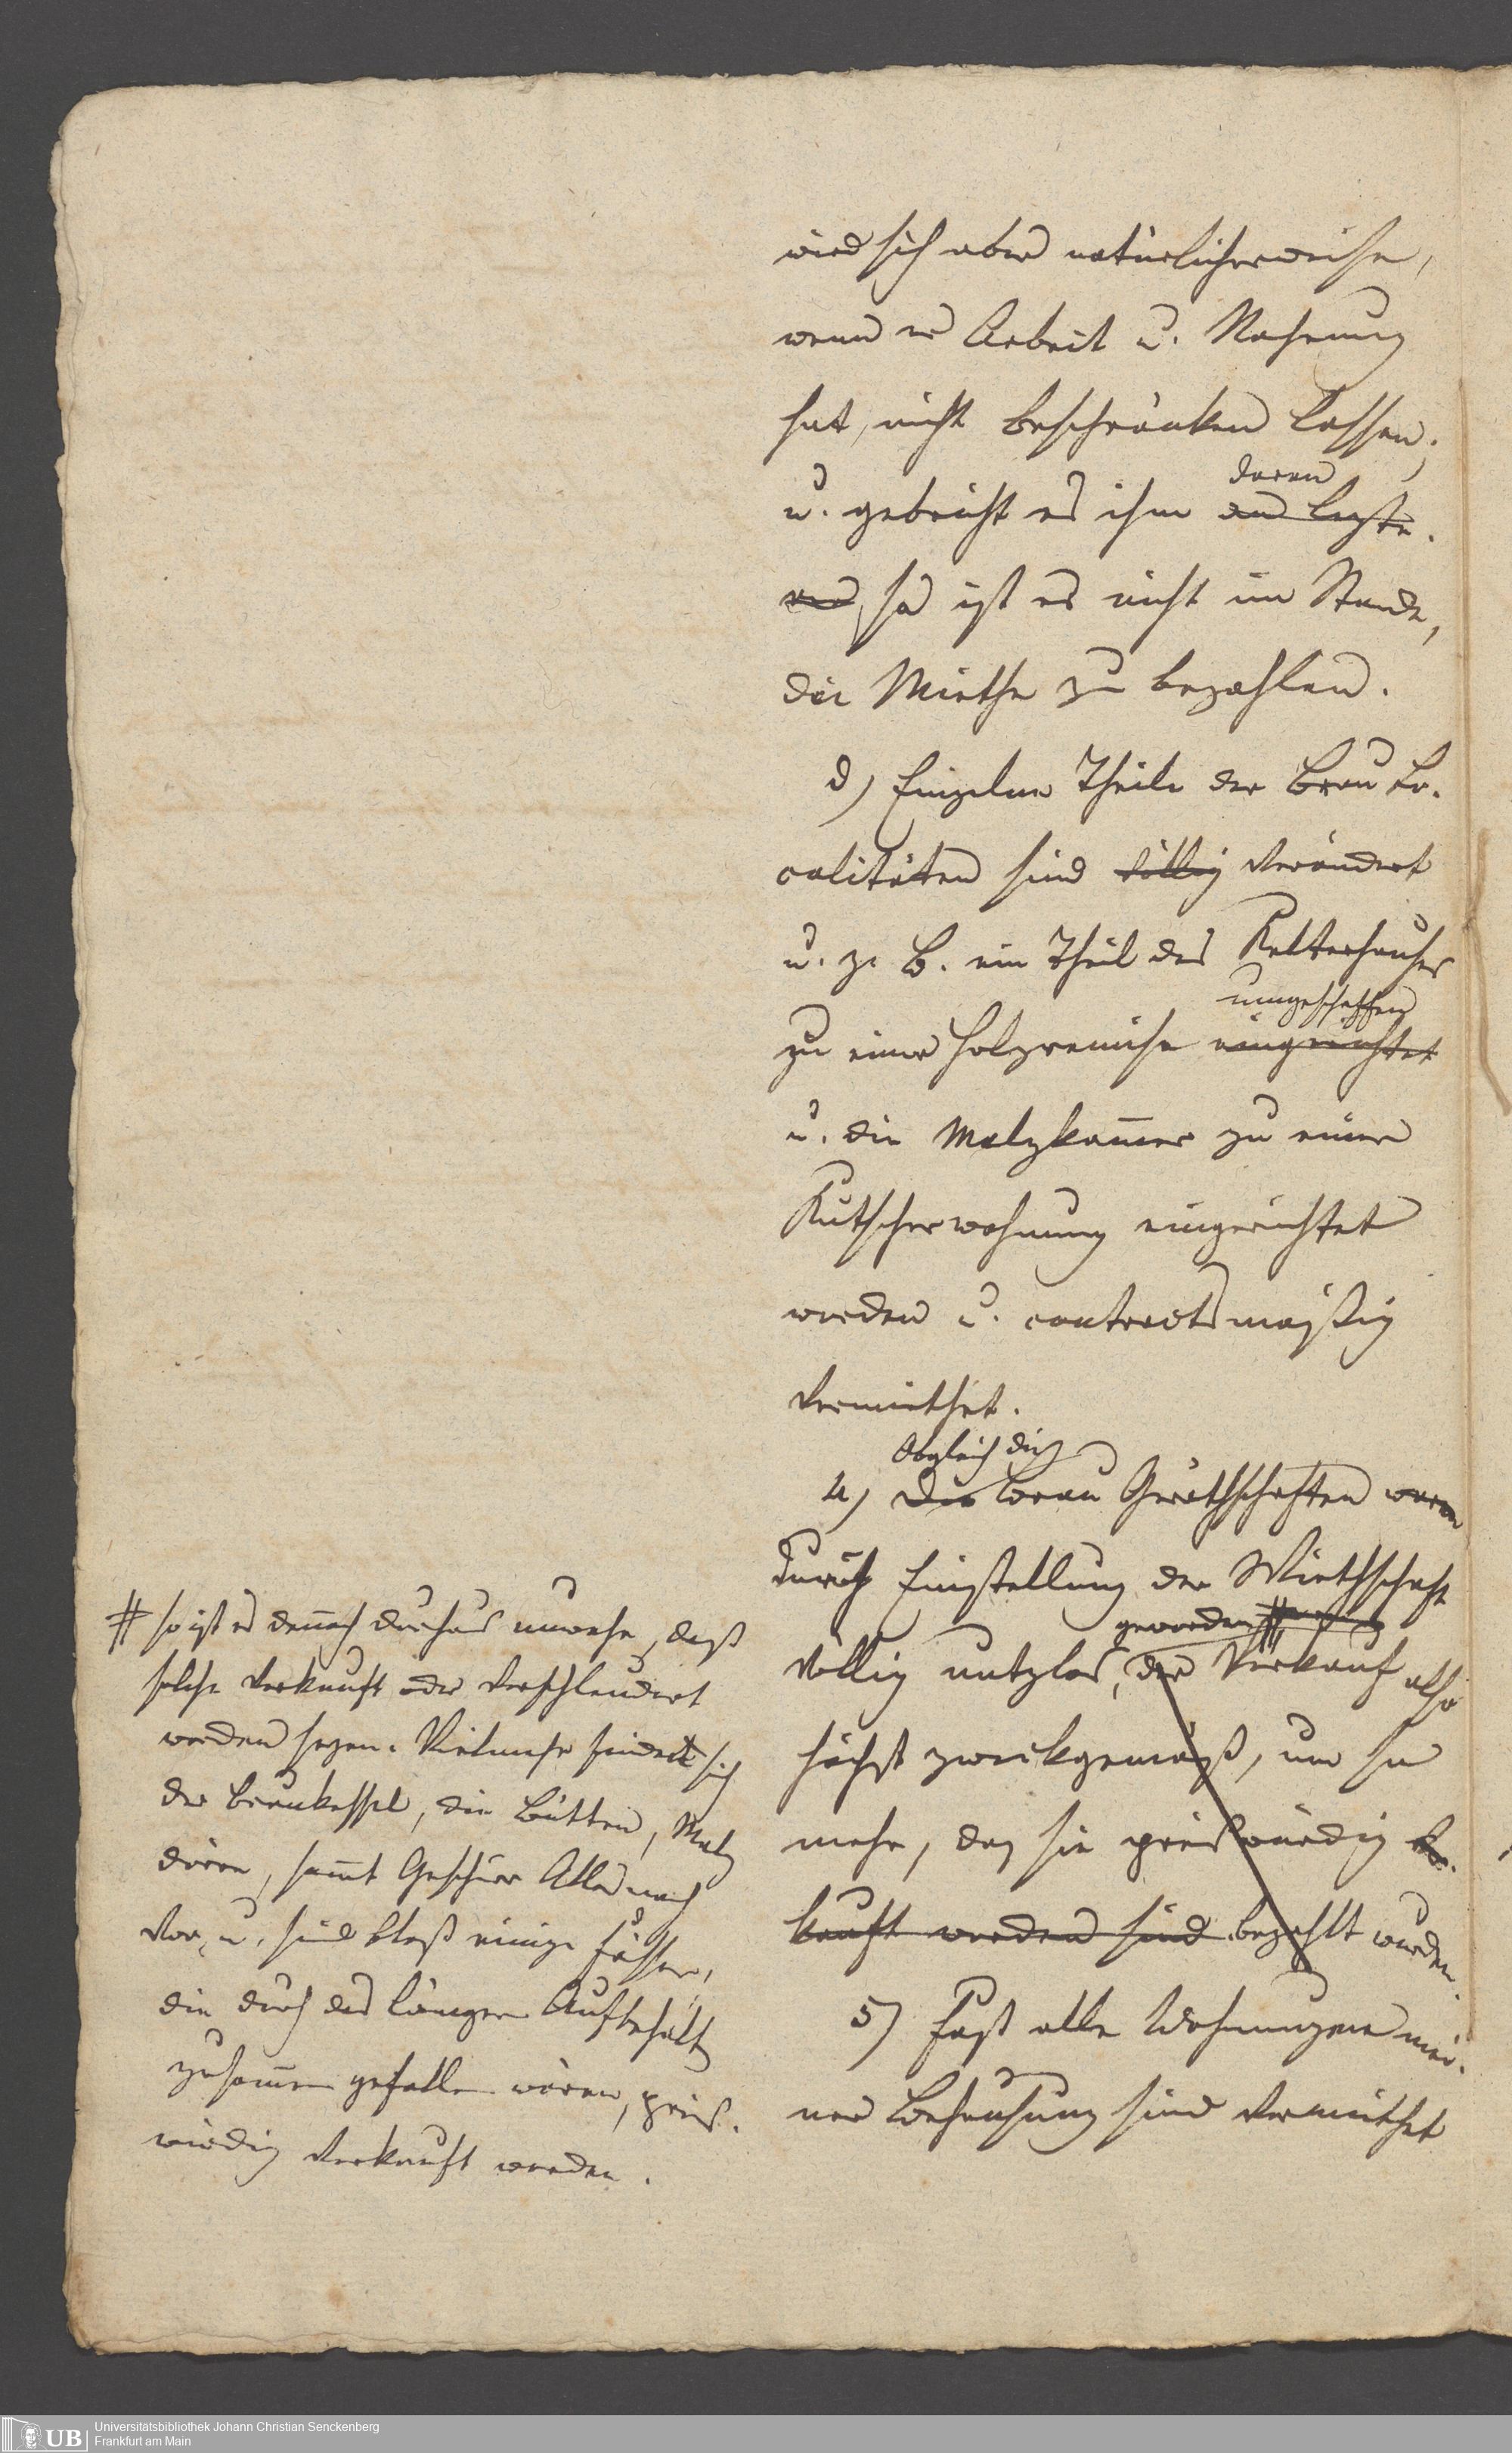 wird sich aber natürlicherweise,
wenn er Arbeit u. Nahrung
hat, nicht beschränken lassen;
daran
u. gebricht es ihm an letzte-
rer, so ist er nicht im Stande,
die Miethe zu bezahlen.
d) Einzelne Theile der Brau Lo-
calitäten sind völlig verändert
u. z. B. ein Theil des Kelterhauses
umgeschaffen
zu einer Holzremise eingerichtet
u. die Malzkam̅er zu einer
Kutscherwohnung eingerichtet
worden u. contractsmäßig
vermiethet.
Obgleich die
4) Die Brau Geräthschaften waren
durch Einstellung der Wirthschaft
geworden #
völlig nutzlos, der Verkauf also
höchst zweckgemäß, um so
mehr, da sie preiswürdig ver-
kauft worden sind bezahlt wurden.
5) Fast alle Wohnungen mei-
ner Behausung sind vermiethet
# so ist es den̅och durchaus unwahr, daß
solche verkauft oder verschleudert
worden seyen. Vielmehr findet sich
der Braukessel, die Bütten, Malz
dörre, sam̅t Geschirr Alles noch
vor, u. sind blos einige Fässer,
die durch das längere Aufbehalten
zusam̅en gefallen wären, preis-
würdig verkauft worden.
Universitätsbibliothek Johann Christian Senckenberg
Frankfurt am Main
UB